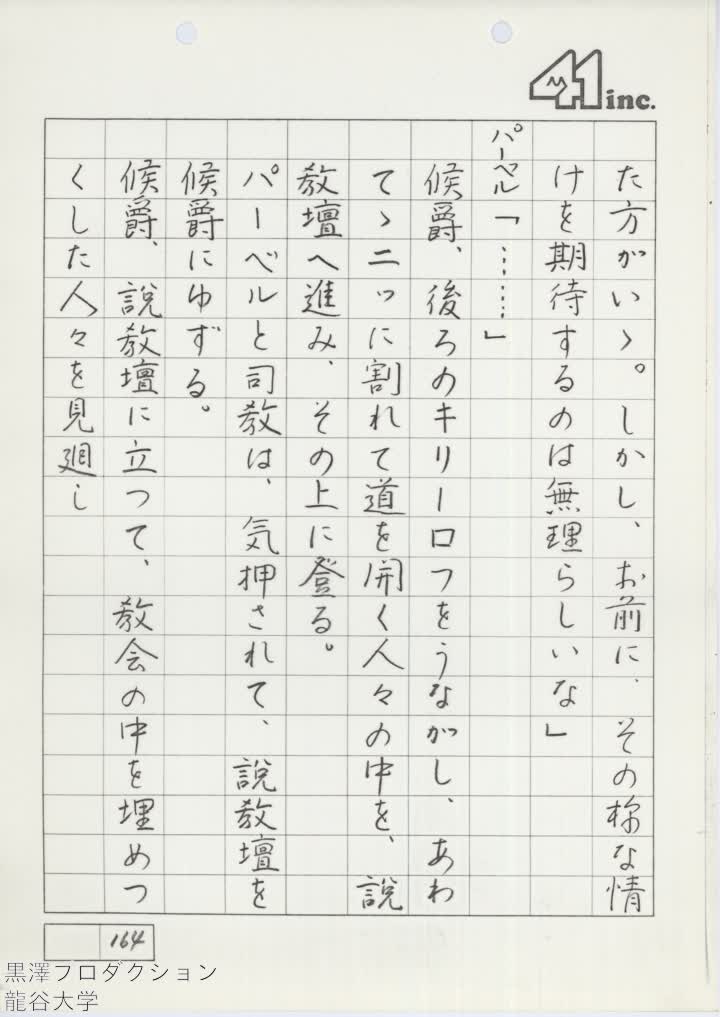 41 inc.
た方がいゝ。しかし、お前に、その様な情
けを期待するのは無理らしいな」
パーベル「……」
候爵、後ろのキリーロフをうながし、あわ
てゝ二ッに割れて道を開く人々の中を、説
教壇へ進み、その上に登る。
パーベルと司教は、気押されて、説教壇を
候爵にゆずる。
候爵、説教壇に立つて、教会の中を埋めつ
くした人々を見廻し
164
黒澤プロダクション
龍谷大学